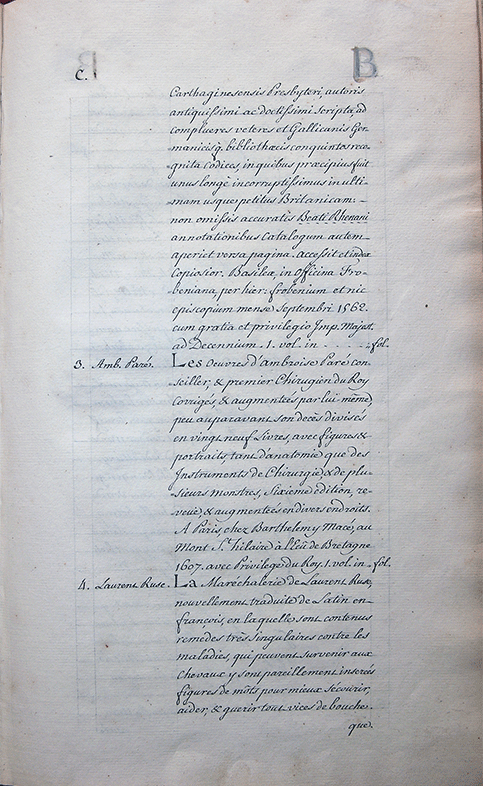 C.
B
Carthaginesensis Presbyteri, autoris
antiquissimi ac doctissimi scripta, ad
complueres veteres et Gallicanis Ger-
manicisq. bibliothæcis conquintos reco-
gnita codices, in quibus præcipius fuit
unus longè incorruptissimus in ulti-
mam usque petitus Britanicam:-
non omissis accuratis Beati Rhenani
annotationibus Catalogum autem
aperiet versa pagina. Accessit et index
Copiosior. Basileæ, in officina Fro-
beniana, per hier: frobenium et nic
episcopium mense Septembri 1562.
cum gratia et privilegio Imp. Majest.
ad Decennium. 1. vol. in - - - - fol.
3. Amb. Paré. Les Oeuvres d'ambroise Paré con-
seiller, & premier Chirugien du Roy
Corrigés, & augmentées par lui-même
peu auparavant son decès divisés
en vingt neuf Livres, avec figures &
portraits, tant d'anatomie que des
Instruments de Chirurgie & de plu-
sieurs monstres, sixieme édition, re-
veue, & augmenteés en divers endroits.
A Paris, chez Barthelemy Macé, au
Mont St. hilaire à l'Ecu de Bretagne
1607. avec Privilege du Roy. 1. vol. in - fol.
4. Laurent Ruse. La Maréchalerie de Laurent Ruse,
nouvellement traduite de Latin en-
francois, en laquelle sont contenus
remedes très singulaires contre les
maladies, qui peuvent survenir aux
Chevaux y sont pareillement inserés
figures de môts pour mieux sécourir,
aider, & guerir tout vices de bouche.
que.